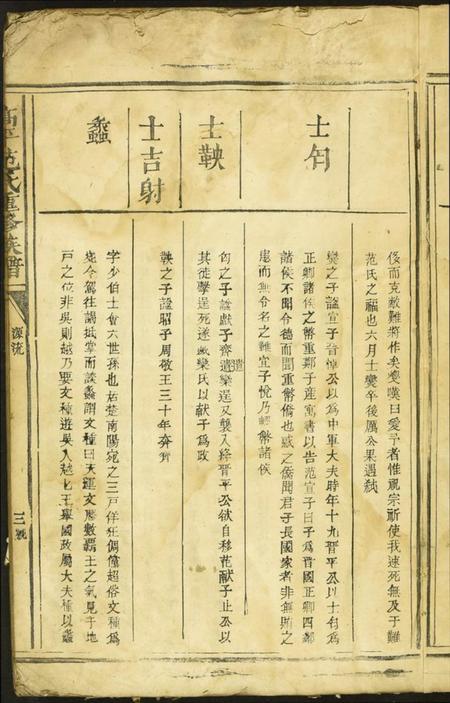 侈而克敵難將作矣爕嘆曰愛予者惟祝宗祈使我速死無及于難
范氏之福也六月士爕卒後厲公果遇弒
士匄
爕之子謚宣子晉悼公以為中軍大夫時年十九晉平公以士匄為
正卿諸侯之幣重鄭子產寓書以告范宣子曰子為晉國正卿四鄰
諸侯不聞令德而聞重幣僑也惑之僑聞君子長國家者非無賄之
患而無令名之難宣子悅乃輕幣諸侯
士鞅
匄之子謚獻子奔遣欒逞又襲入絳晉平公欲自移范献子止公以
其徒擊逞死遂滅欒氏以獻子為政
士吉射
鞅之子謚昭子周敬王三十年奔齊
蠡
字少伯士會六世孫也居楚南陽宛之三戶佯狂倜儻超俗文種為
宛令駕往謁抵掌而談蠡謂文種曰天運文歷數霸王之氣見于地
戶之位非吳則越乃要文種遊吳入越七王舉國政屬大夫種以蠡
高平范氏重修族譜
源流
三號